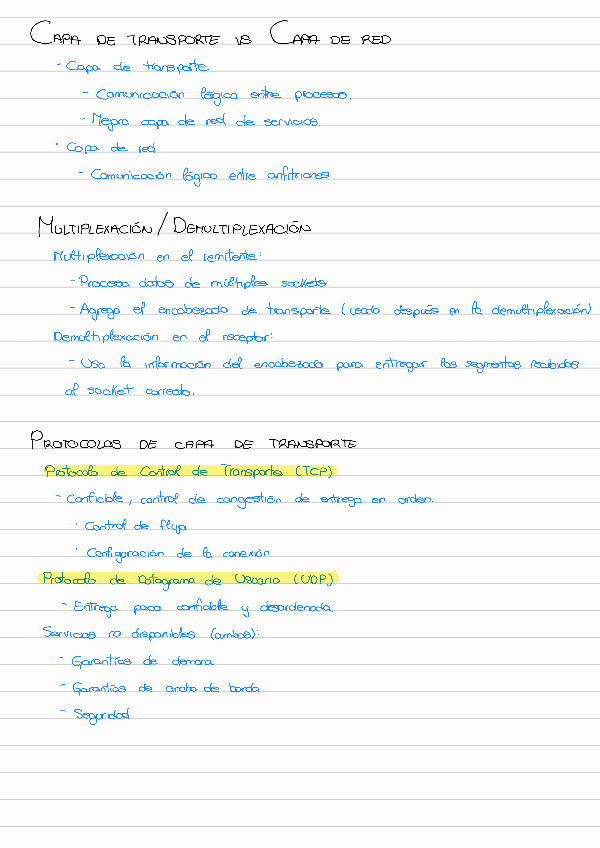 CAPA DE TRANSPORTE VS CAPA DE RED
- Capa de transporte
- Comunicación lógica entre procesos.
- Mejora capa de red de servicios.
· Capa de red
- Comunicación lógica entre anfitriones
MULTIPLEXACIÓN / DEMULTIPLEXACIÓN
Multiplexación en el remitente:
- Procesa datos de múltiples sockets
- Agrega el encabezado de transporte (usado después en la demultiplexación)
Demultiplexación en el receptor:
- Usa la información del encabezado para entregar los segmentos recibidos
al socket correcto.
PROTOCOLOS DE CAPA DE TRANSPORTE
Protocolo de Control de Transporte (TCP)
- Confiable, control de congestión de entrega en orden.
· Control de flujo
· Configuración de la conexión
Protocolo de Datagrama de Usuario (UDP)
- Entrega poco confiable y desordenada.
Servicios no disponibles (ambos):
- Garantías de demora
- Garantías de ancho de banda
- Seguridad